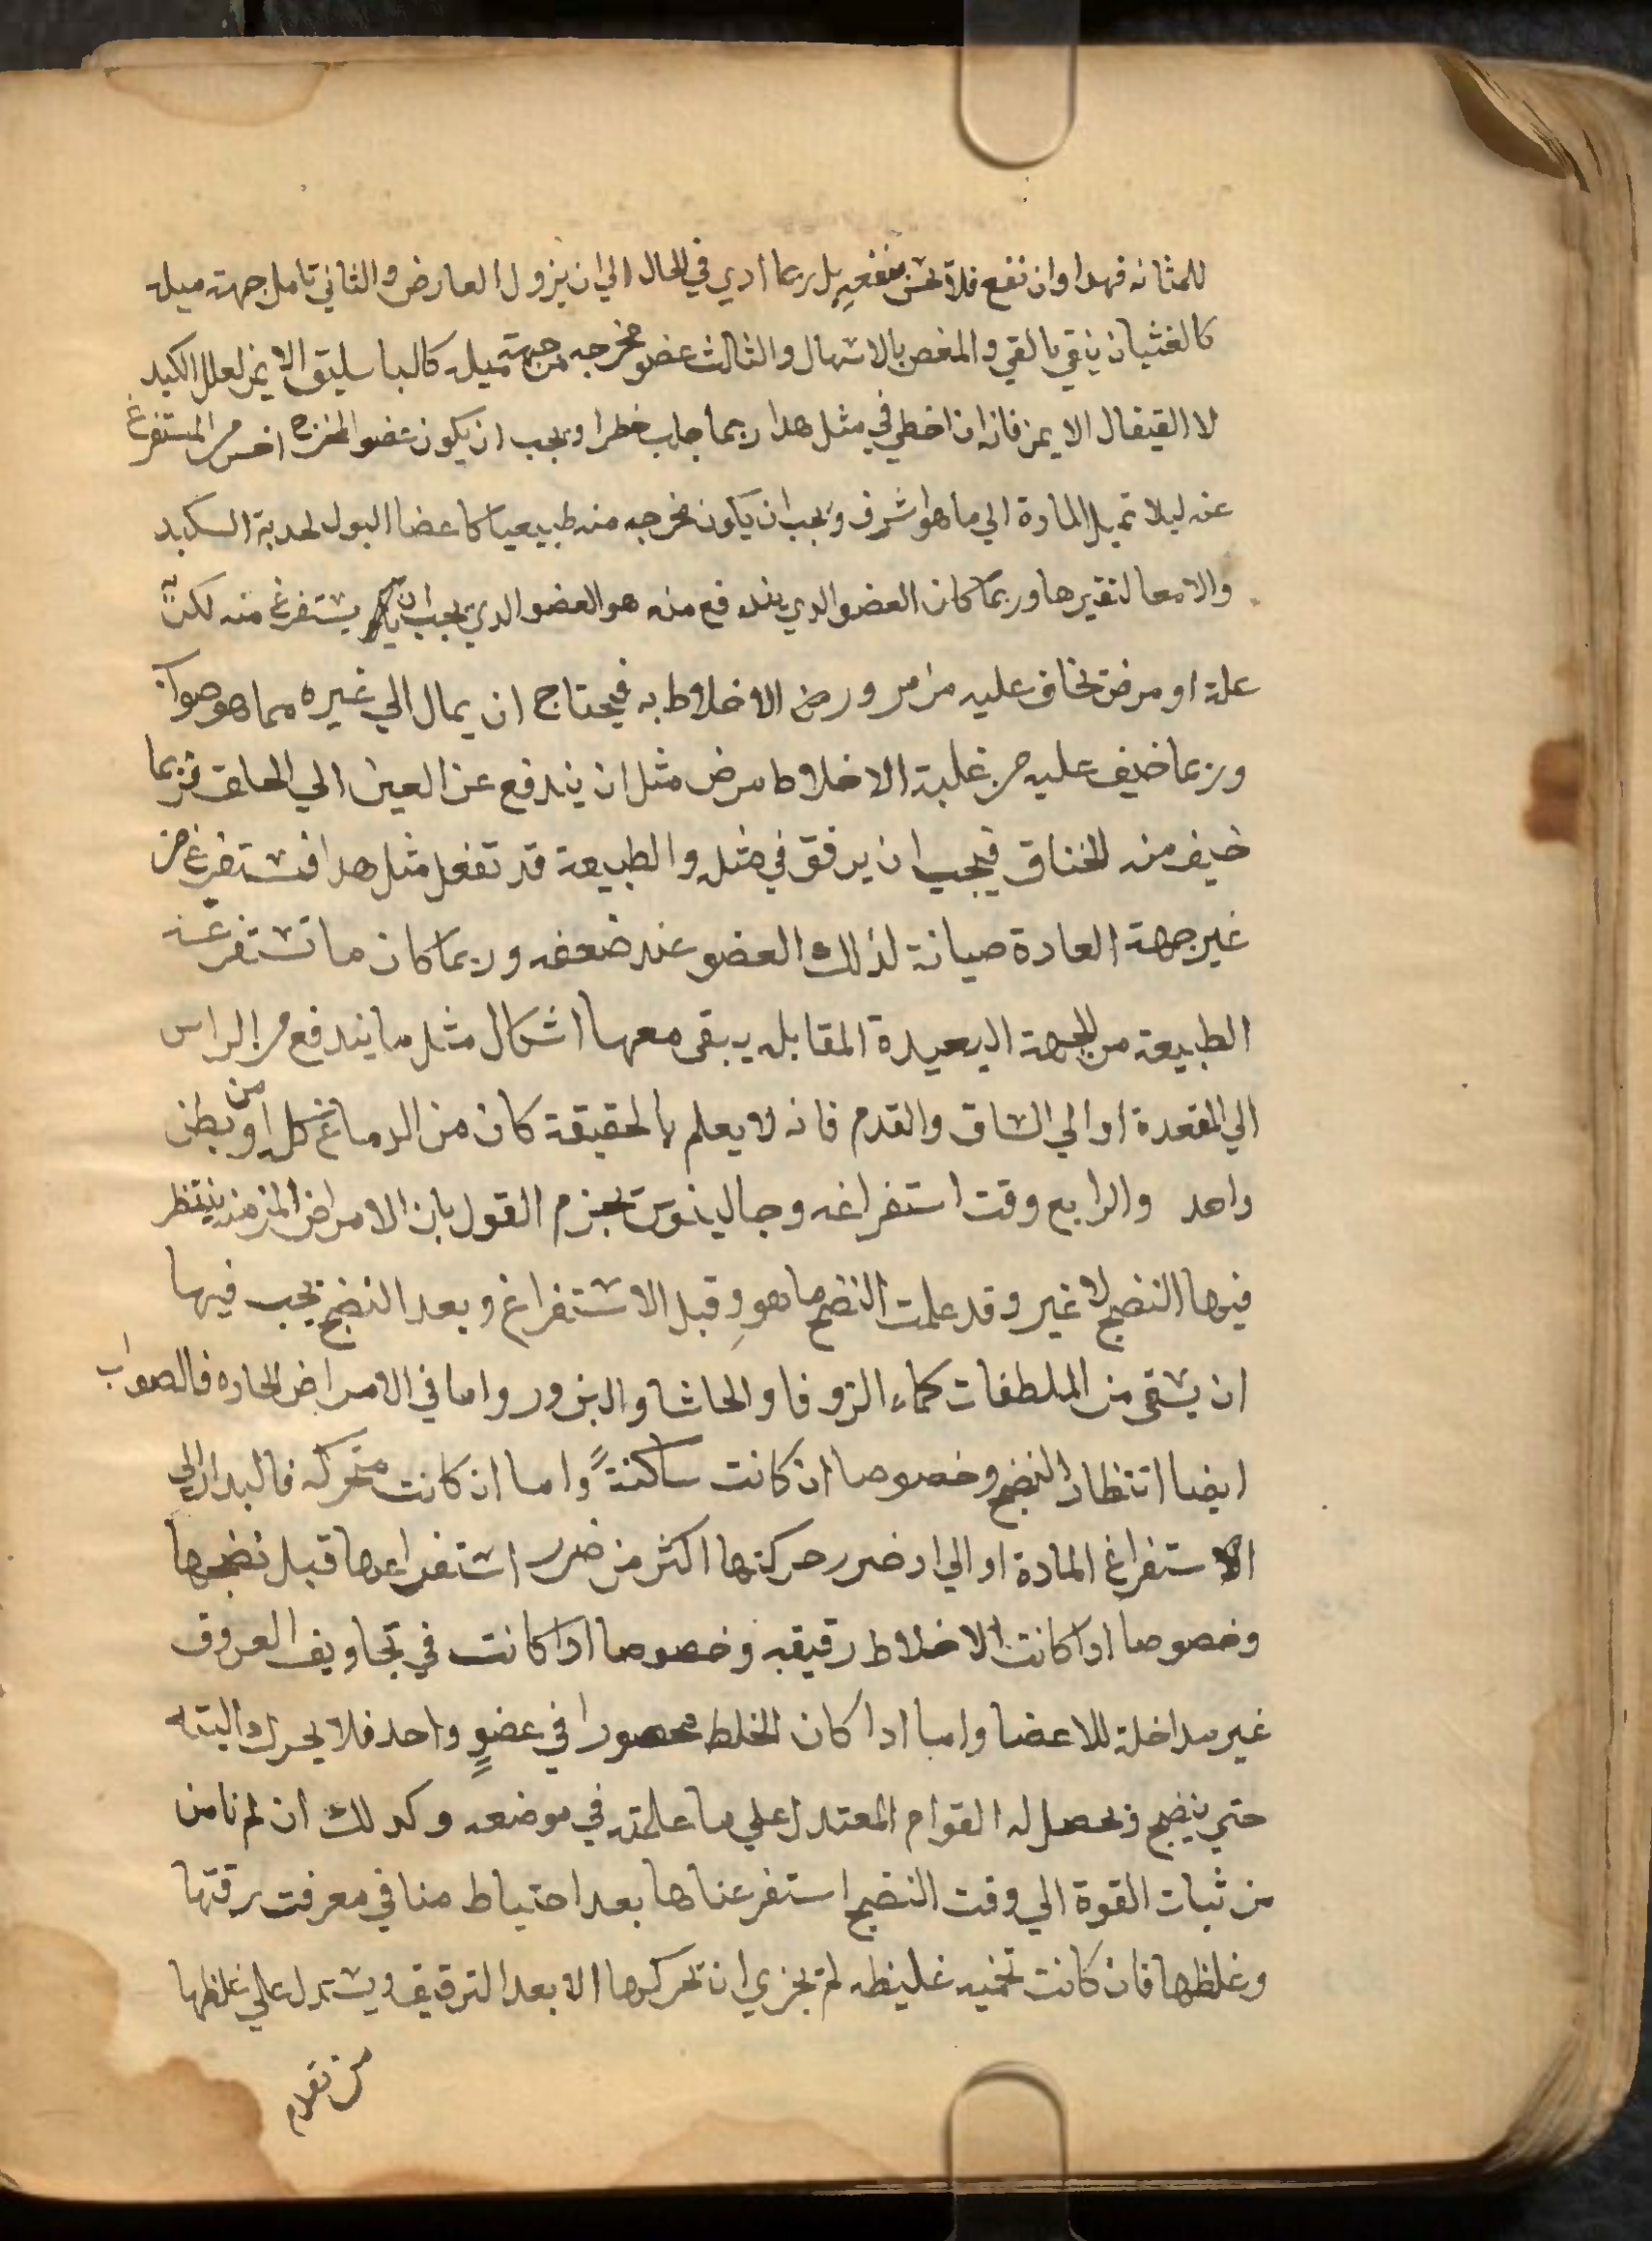 للمثانه فهدا وان نفع فلا تحس بنفعه بل ربما ادي في الحال الي ان يزول العارض والثاني تامل جهة ميله
كالغثيان ينقي بالقي والمغص بالاسهال والثالث عضو مخرجه من جهة ميله كالباسليق الايمن لعلل الكبد
لا القيفال الايمن فانه ان اخطي في مثل هدا ربما جلب خطرا ويجب ان يكون عضو المخرج اخس من المستفرغ
عنه ليلا تميل المادة الي ما هو اشرف ويجب ان يكون مخرجه منه طبيعيا كاعضا البول لحدبة الكبد
والامعا لتقيرها وربما كان العضو الدي يندفع منه هو العضو الدي يجب ان يستفرغ منه لكن به
علة او مرض يخاف عليه من مرور الاخلاط به فيحتاج ان يمال الي غيره مما هو صواب
وربما خيف عليه من غلبة الاخلاط مرض مثل ان يندفع عن العين الي الحلق فربما
خيف منه الخناق فيجب ان يرفق في مثله والطبيعة قد تفعل مثل هدا فتستفرغ من
غير جهة العادة صيانة لذلك العضو عند ضعفه وربما كان ما تستفرغه
الطبيعة من الجهة البعيدة المقابله يبقى معها اشكال مثل ما يندفع من الراس
الي المقعدة او الي الساق والقدم فانه لا يعلم بالحقيقة كان من الدماغ كله او من بطن
واحد والرابع وقت استفراغه وجالينوس يجزم القول بان الامراض المزمنه ينتظر
فيها النضج لا غير وقد علمت النضج ما هو وقبل الاستفراغ وبعد النضج يجب فيها
ان يسقى من الملطفات كماء الزوفا والحاشا والبزور واما في الامراض الحاده فالصواب
ايضا انتظار النضج وخصوصا ان كانت ساكنةً واما ان كانت متحركه فالبدار الي
الاستفراغ المادة اولي اد ضرر حركتها اكثر من ضرر استفراغها قبل نضجها
وخصوصا ادا كانت الاخلاط رقيقه وخصوصا ادا كانت في تجاويف العروق
غير مداخلة للاعضا واما ادا كان الخلط محصورا في عضوٍ واحد فلا يحرك البته
حتي ينضج ويحصل له القوام المعتدل علي ما علمته في موضعه وكدلك ان لم نامن
من ثبات القوة الي وقت النضج استفرغناها بعد احتياط منا في معرفت رقتها
وغلظها فان كانت تخميه غليظه لم يجزي ان تحركها الا بعد الترقيق ويستدل علي غلظها
من تقدم